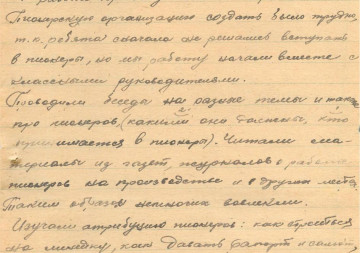 Пионерскую организацию создать было трудно
т.к. ребята сначала не решались вступать
в пионеры, но мы работу начали вместе с
классными руководителями.
Проводили беседы на разные темы и также
про пионеров, (какими они должены, кто
принимается в пионеры). Читали ма-
териалы из газет, журналов о работе
пионеров на производстве и в других местах
Таким образом
Изучали атрибуцию пионеров: как строиться
на линейку, как давать рапорт и салют,